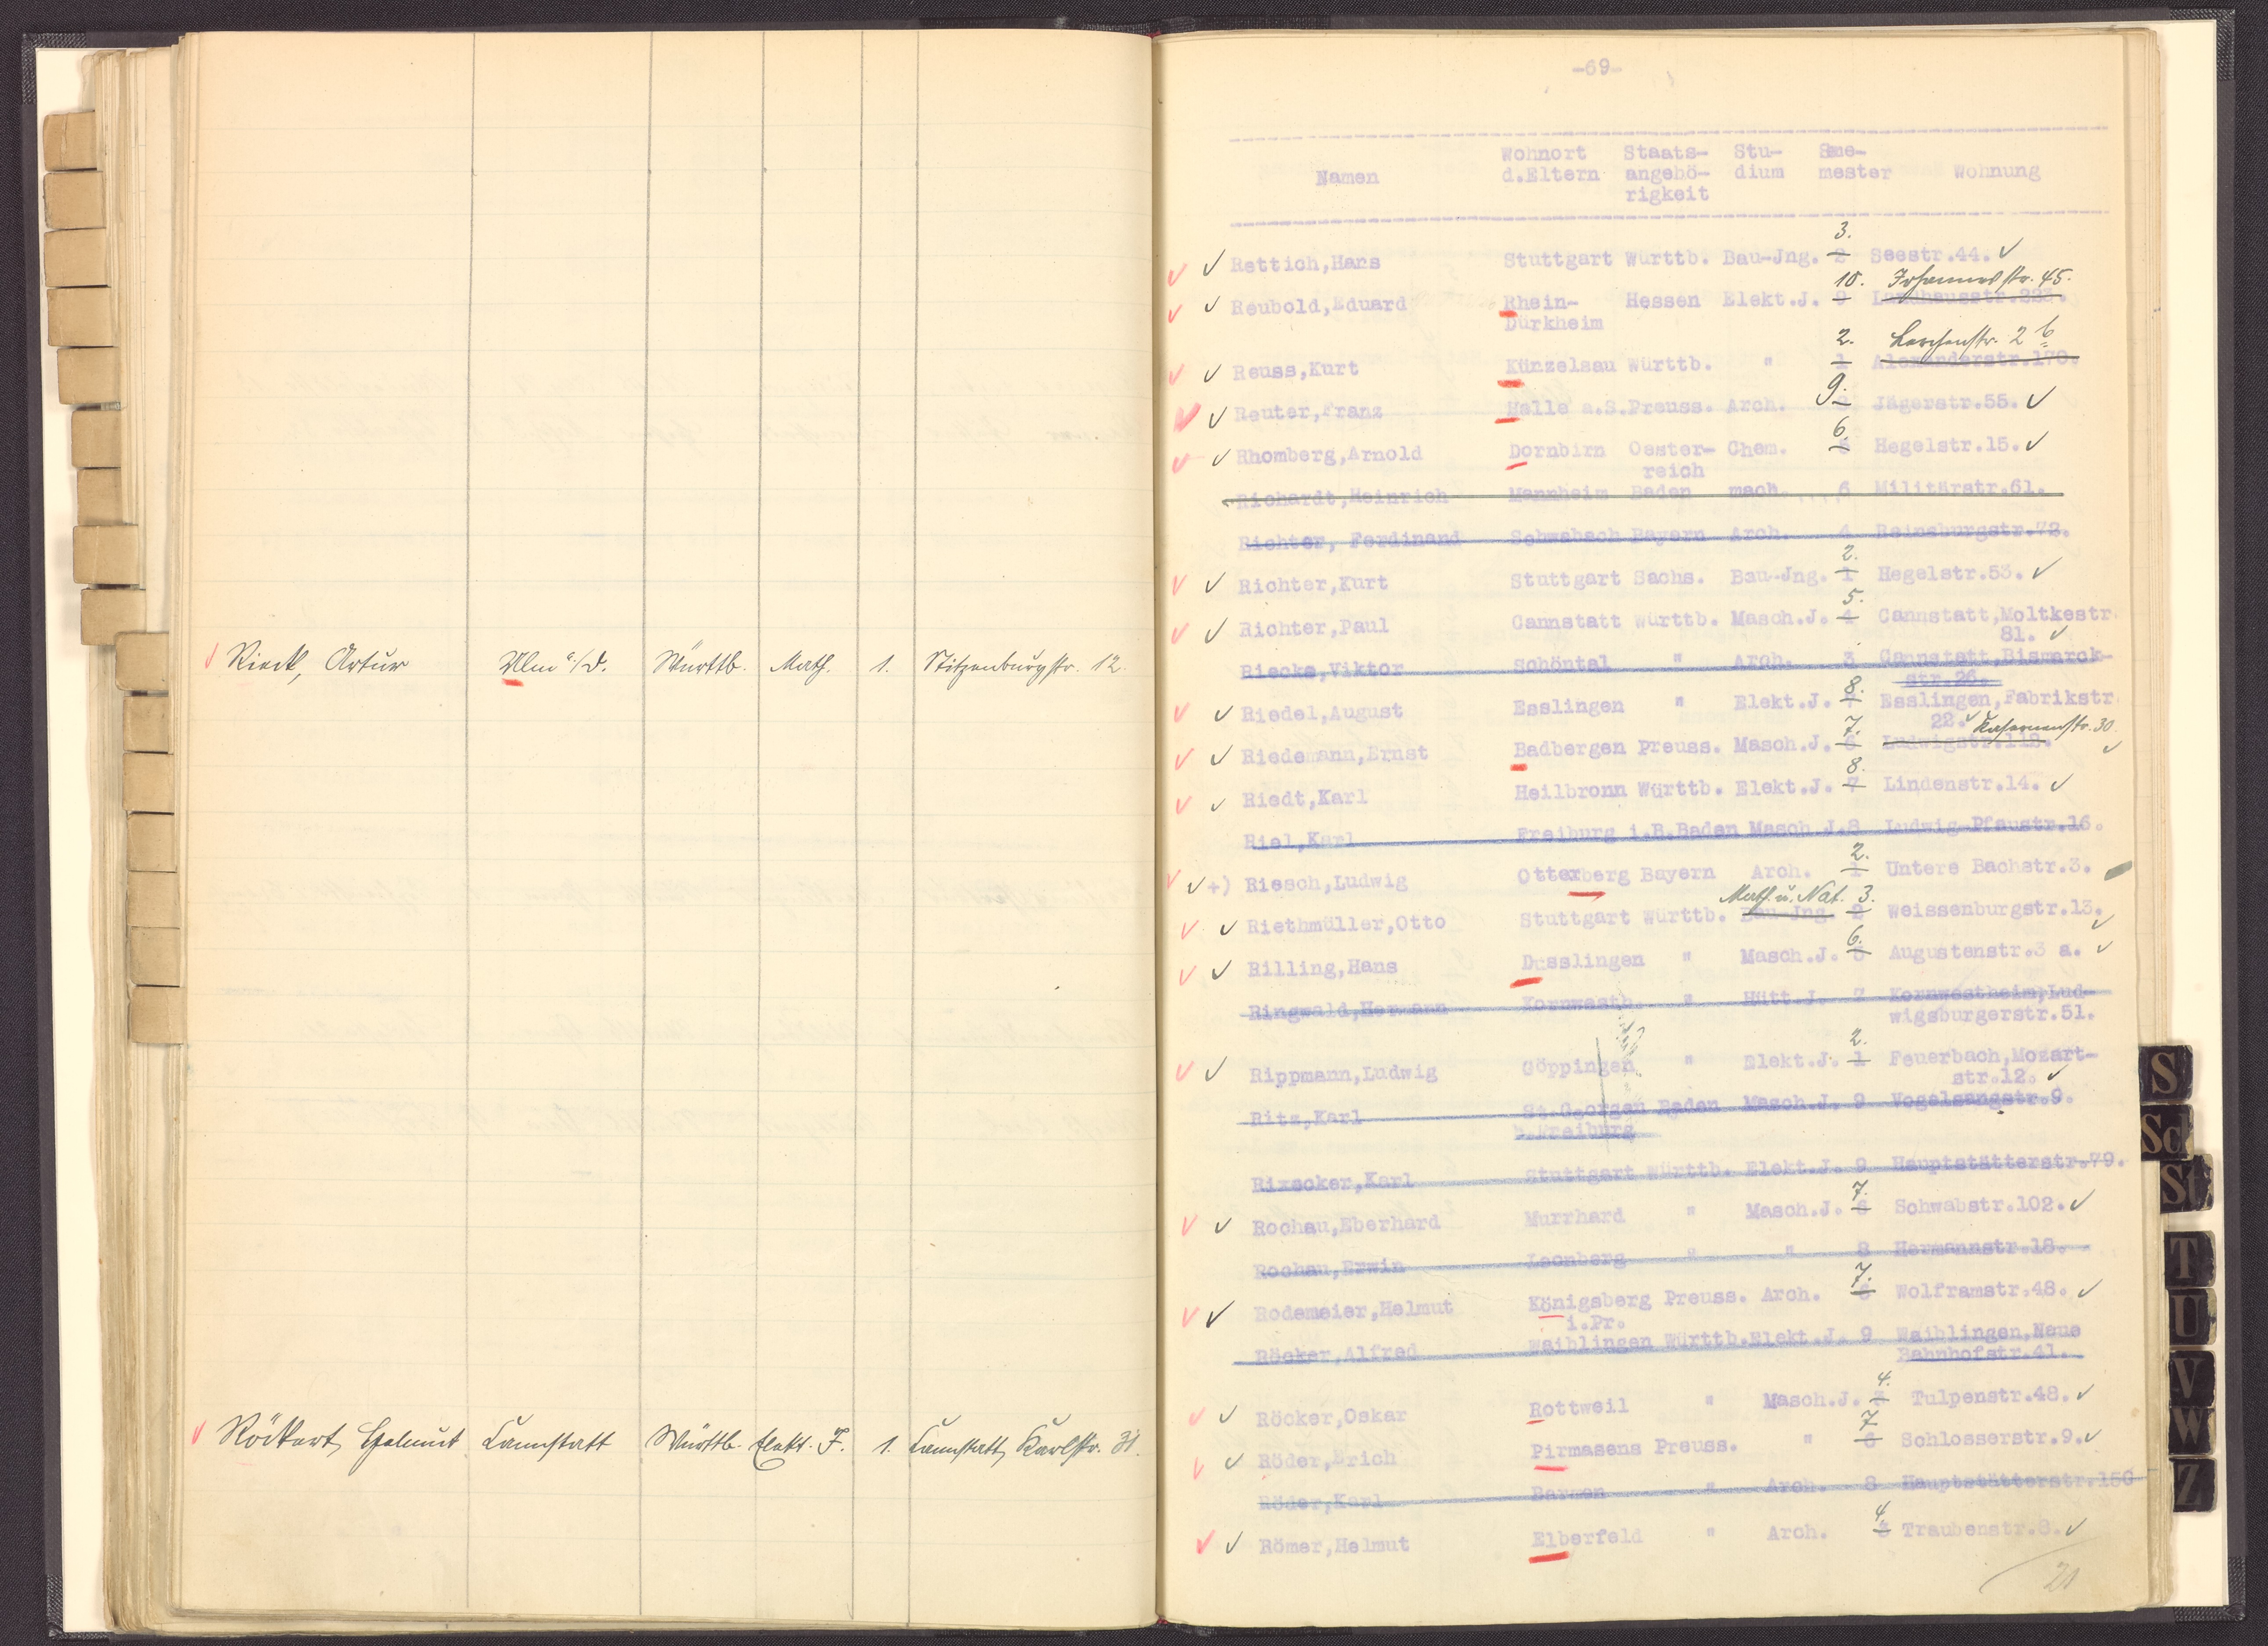 Rieck, Artur Ulm a/D. Württb. Math. 1. Stitzenburgstr. 12.
Röckert, Helmut Cannstatt Württb. Elekt. J. 1. Cannstatt, Karlstr. 31.
-69-
Namen Wohnort d.Eltern Staats-angehö-rigkeit Stu-dium Seme-mester Wohnung
3.
Rettich,Hans Stuttgart Württb. Bau-Jng. 2 Seestr.44.
10. Johannesstr. 45.
Reubold,Eduard Rhein- Hessen Elekt.J. 9 Landhausstr.223.
Dürkheim
2. Lerchenstr. 2 b
Reuss,Kurt Künzelsau Württb. " 1 Alexanderstr.170.
9.
Reuter,Franz Halle a.S.Preuss. Arch. 8 Jägerstr.55.
6.
Rhomberg,Arnold Dornbirn Oester- Chem. 5 Hegelstr.15.
reich
Richardt,Heinrich Mannheim Baden mach. 6 Militärstr.61.
Richter, Ferdinand Schwabach Bayern Arch. 4 Reinsburgstr.72.
2.
Richter,Kurt Stuttgart Sachs. Bau-Jng. 1 Hegelstr.53.
5.
Richter,Paul Cannstatt Württb. Masch.J. 4 Cannstatt,Moltkestr.
81.
Riecke,Viktor Schöntal " Arch. 3 Cannstatt,Bismarck-
str.26.
8.
Riedel,August Esslingen " Elekt.J. 7 Esslingen,Fabrikstr.
22.
7. Kasernenstr. 30.
Riedemann,Ernst Badbergen Preuss. Masch.J. 6 Ludwigstr.112.
8.
Riedt,Karl Heilbronn Württb. Elekt.J. 7 Lindenstr.14.
Riel,Karl Freiburg i.B.Baden Masch.J.8 Ludwig-Pfaustr.16.
2.
+) Riesch,Ludwig Otterberg Bayern Arch. 1 Untere Bachstr.3.
Math. u. Nat. 3.
Riethmüller,Otto Stuttgart Württb. Bau-Jng. 2 Weissenburgstr.13.
6.
Rilling,Hans Dusslingen " Masch.J. 5 Augustenstr.3 a.
Ringwald,Hermann Kornwesth. " Hütt.J. 7 Kornwestheim,Lud-
wigsburgerstr.51.
2.
Rippmann,Ludwig Göppingen " Elekt.J. 1 Feuerbach,Mozart-
str.12.
Ritz,Karl St.Georgen Baden Masch.J. 9 Vogelsangstr.9.
b.Freiburg
Rixecker,Karl Stuttgart Württb. Elekt.J. 9 Hauptstätterstr.79.
7.
Rochau,Eberhard Murrhard " Masch.J. 6 Schwabstr.102.
Rochau,Erwin Leonberg " " 8 Hermannstr.18.
7.
Rodemeier,Helmut Königsberg Preuss. Arch. 6 Wolframstr.48.
i.Pr.
Röcker,Alfred Waiblingen Württb.Elekt.J. 9 Waiblingen,Neue
Bahnhofstr.41.
4.
Röcker,Oskar Rottweil " Masch.J. 3 Tulpenstr.48.
7
Röder,Erich Pirmasens Preuss. " 6 Schlosserstr.9.
Röder,Karl Barmen " Arch. 8 Hauptstätterstr.150
4.
Römer,Helmut Elberfeld " Arch. 3 Traubenstr.8.
21
S
Sch
St
T
U
V
W
Z